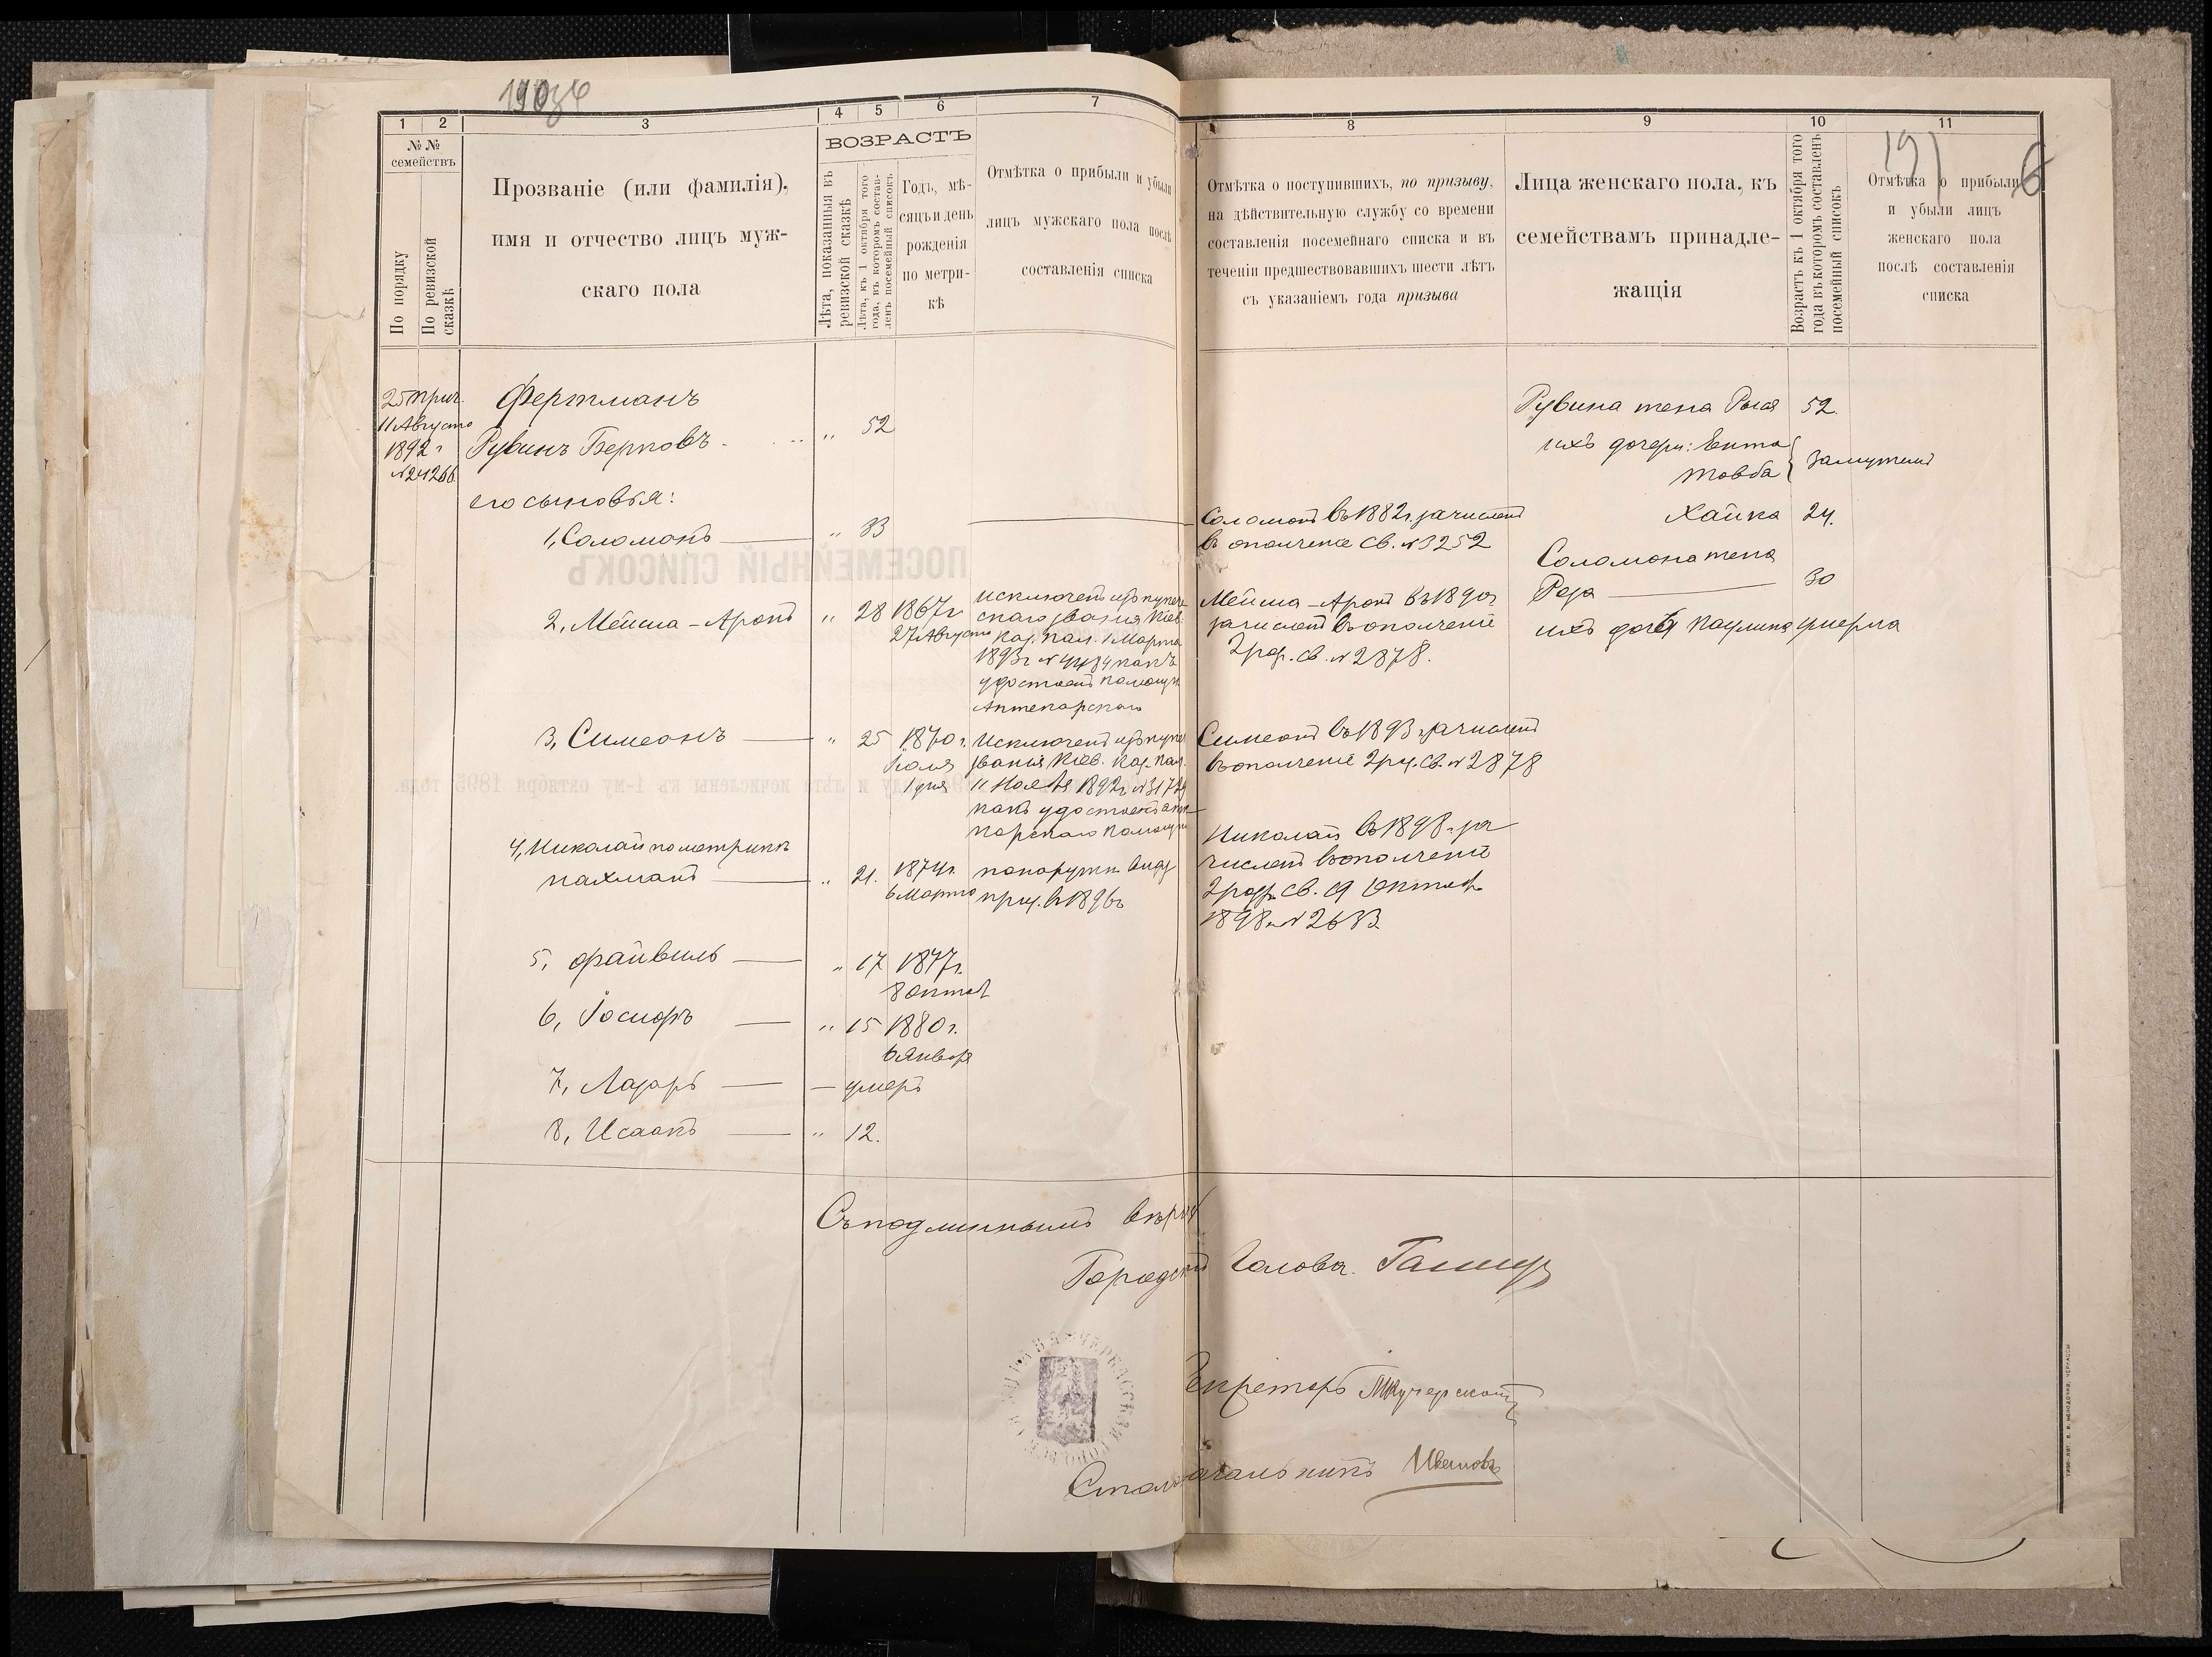 1 2 3 4 5 6 7
№ №
семействъ
По порядку
По ревизской
сказкѣ
Прозваніе (или фамилія),
имя и отчество лицъ муж-
скаго пола
ВОЗРАСТЪ
Лѣта, показанныя въ
ревизской сказкѣ
Лѣта, къ 1 октября того
года, въ которомъ состав-
ленъ посемейный списокъ
Годъ, мѣ-
сяцъ и день
рожденія
по метри-
кѣ
Отмѣтка о прибыли и убыли
лицъ мужскаго пола послѣ
составленія списка
8 9 10 11
Отмѣтка о поступившихъ, по призыву,
на дѣйствительную службу со времени
составленія посемейнаго списка и въ
теченіи предшествовавшихъ шести лѣтъ
съ указаніемъ года призыва
Лица женскаго пола, къ
семействамъ принадле-
жащія
Возрастъ къ 1 октября того
года въ которомъ составленъ
посемейный списокъ
191
6
Отмѣтка о прибыли
и убыли лицъ
женскаго пола
послѣ составленія
списка
25 прич.
11 Августа
1892 г
№ 24266
Фертманъ
Рувинъ Берковъ - " 52
его сыновья:
1, Соломонъ — " 33
2, Мейша-Аронъ " 28 1867 г
27 Августа
Исключенъ изъ купече
скаго званія Кіев.
Каз. Пал. 1 Марта
1893 г № 4484 какъ
удостоенъ помощн.
Аптекарскаго
3, Симеонъ — " 25 1870 г.
Іюля
1 дня
Исключенъ изъ купеч
званія Кіев. Каз. Пал.
11 Нояб 1892 г №
какъ удостоенъ апте
карскаго помощн
4, Николай по метрикѣ
Нахманъ — " 21. 1874 г.
6 Марта
по наружн. виду
приз. въ 1896 г
5, Файвель — " 17 1877 г.
8 Октяб
6, Іосифъ — " 15 1880 г.
6 Января
7, Лазарь — — умеръ
8, Исаакъ — " 12.
Соломонъ въ 1882 г. зачисленъ
въ ополченіе св. № 3252
Мейша-Аронъ въ 1890 г
зачисленъ въ ополченіе
2 разр. св. № 2878.
Симеонъ въ 1893 г зачисленъ
въ ополченіе 2 раз. св. № 2878
Николай въ 1898 г. за
численъ въ ополченіе
2 разр. св. 19 Октяб.
1898 г № 2683
Рувина жена Рыся 52.
ихъ дочери: Ента
Товба } замужемъ
Хайка 24.
Соломона жена
Реза — 30
ихъ дочь Паулина умерла
Съ подлиннымъ вѣрно
Городской Голова.
Секретарь
Столоначальникъ Ивановъ
ПОСЕМЕЙНЫЙ СПИСОКЪ